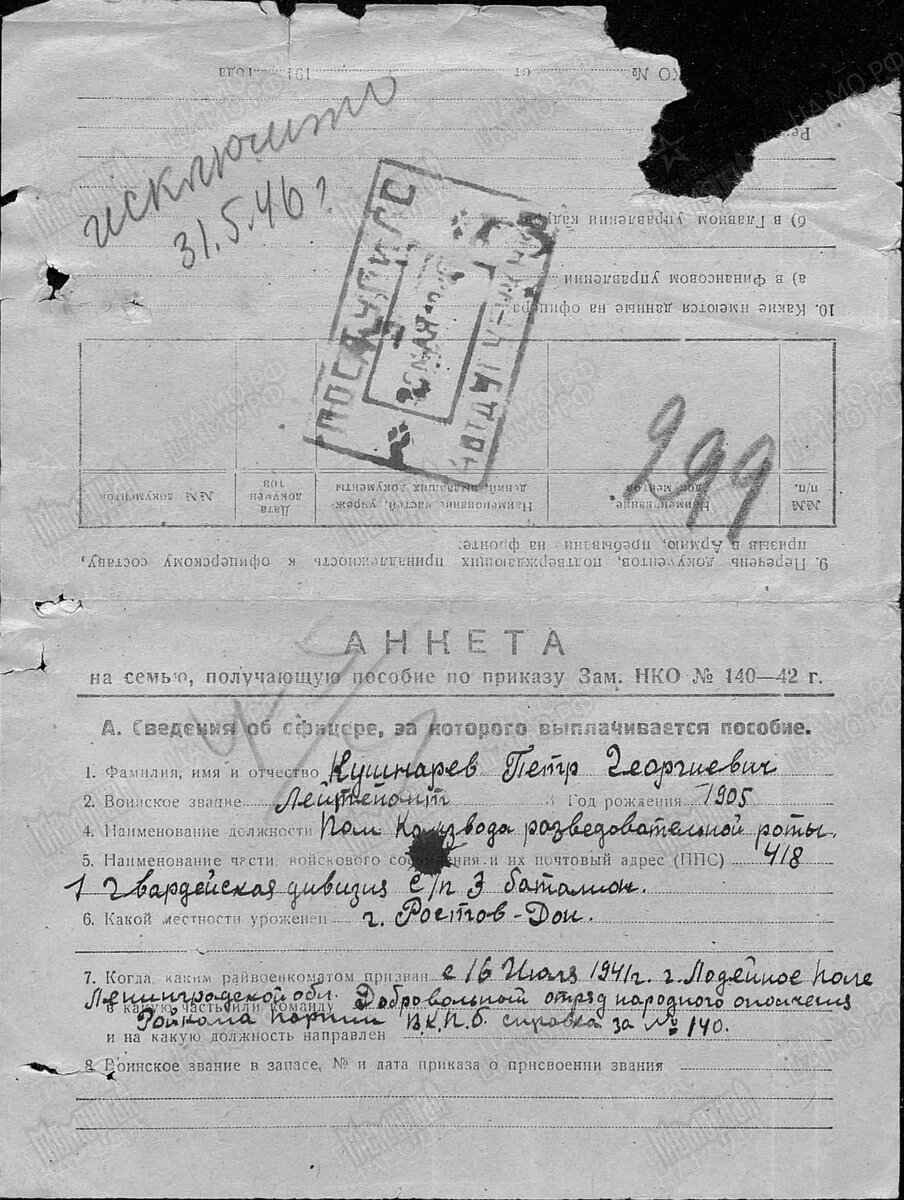 исключить
31.5.46 г.
299
КО № от 194 года
б) в Главном управлении кадров
а) в Финансовом управлении
10. Какие имеются данные на офицера:
№№ п/п. Наименование документов Наименование частей, учреждений, выдавших документы Дата документов №№ документов
9. Перечень документов, подтверждающих принадлежность к офицерскому составу,
призыв в Армию, пребывании на фронте:
АНКЕТА
на семью, получающую пособие по приказу Зам. НКО № 140—42 г.
А. Сведения об офицере, за которого выплачивается пособие.
1. Фамилия, имя и отчество Кушнарев Петр Георгиевич
2. Воинское звание Лейтенант 3 Год рождения 1905
4. Наименование должности Пом Ком взвода разведовательной роты.
5. Наименование части, войскового соединения и их почтовый адрес (ППС) 418
1 Гвардейская дивизия с/п 3 баталион.
6. Какой местности уроженец г. Ростов-Дон.
7. Когда, каким райвоенкоматом призван с 16 Июля 1941 г. г Лодейное Поле
Ленинградской обл. Добровольный отряд народного ополчения
в какую часть или команду
Райкома партии В.К.П.б. справка за № 140.
и на какую должность направлен
8. Воинское звание в запасе, № и дата приказа о присвоении звания